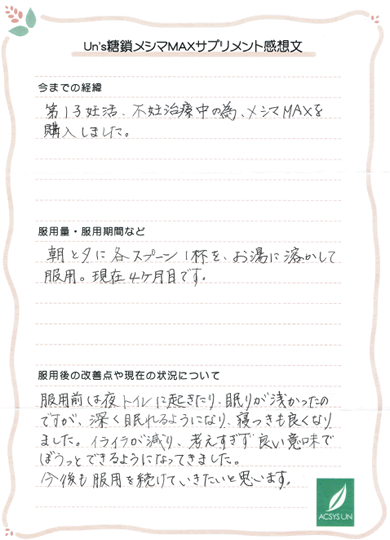 Un's糖鎖メシマMAXサプリメント感想文
今までの経緯
第1子妊活、不妊治療中の為、メシマMAXを
購入しました。
服用量・服用期間など
朝と夕に各スプーン1杯を、お湯に溶かして
服用。現在4ヶ月目です。
服用後の改善点や現在の状況について
服用前は夜トイレに起きたり、眠りが浅かったの
ですが、深く眠れるようになり、寝つきも良くなり
ました。イライラが減り、考えすぎず良い意味で
ぼうっとできるようになってきました。
今後も服用を続けていきたいと思います。
ACSYS UN